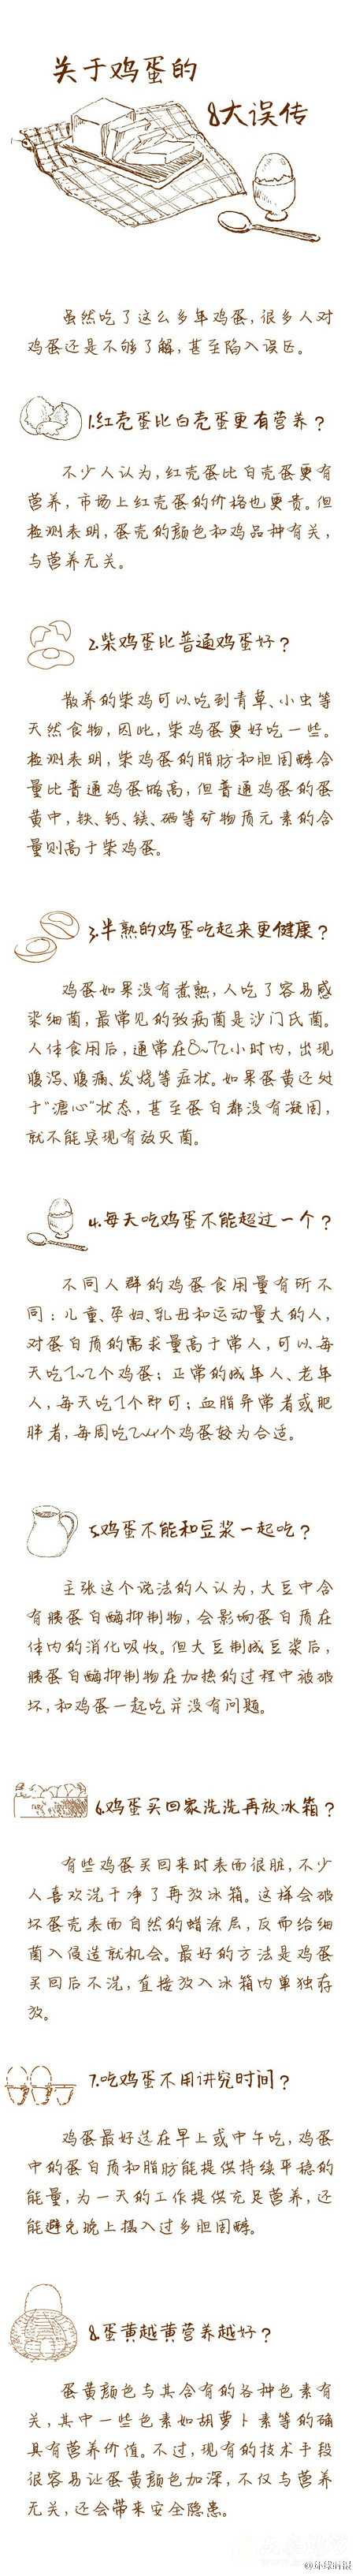 关于鸡蛋的
8大误传
虽然吃了这么多年鸡蛋,很多人对
鸡蛋还是不够了解,甚至陷入误区。
1.红壳蛋比白壳蛋更有营养?
不少人认为,红壳蛋比白壳蛋更有
营养,市场上红壳蛋的价格也更贵。但
检测表明,蛋壳的颜色和鸡品种有关,
与营养无关。
2.柴鸡蛋比普通鸡蛋好?
散养的柴鸡可以吃到青草、小虫等
天然食物,因此,柴鸡蛋更好吃一些。
检测表明,柴鸡蛋的脂肪和胆固醇含
量比普通鸡蛋略高,但普通鸡蛋的蛋
黄中,铁、钙、镁、硒等矿物质元素的含
量则高于柴鸡蛋。
3.半熟的鸡蛋吃起来更健康?
鸡蛋如果没有煮熟,人吃了容易感
染细菌,最常见的致病菌是沙门氏菌。
人体食用后,通常在8~72小时内,出现
腹泻、腹痛、发烧等症状。如果蛋黄还处
于"溏心"状态,甚至蛋白都没有凝固,
就不能实现有效灭菌。
4.每天吃鸡蛋不能超过一个?
不同人群的鸡蛋食用量有所不
同:儿童、孕妇、乳母和运动量大的人,
对蛋白质的需求量高于常人,可以每
天吃1~2个鸡蛋;正常的成年人、老年
人,每天吃1个即可;血脂异常者或肥
胖者,每周吃2~4个鸡蛋较为合适。
5.鸡蛋不能和豆浆一起吃?
主张这个说法的人认为,大豆中含
有胰蛋白酶抑制物,会影响蛋白质在
体内的消化吸收。但大豆制成豆浆后,
胰蛋白酶抑制物在加热的过程中被破
坏,和鸡蛋一起吃并没有问题。
6.鸡蛋买回家洗洗再放冰箱?
有些鸡蛋买回来时表面很脏,不少
人喜欢洗干净了再放冰箱。这样会破
坏蛋壳表面自然的蜡涂层,反而给细
菌入侵造就机会。最好的方法是鸡蛋
买回后不洗,直接放入冰箱内单独存
放。
7.吃鸡蛋不用讲究时间?
鸡蛋最好选在早上或中午吃,鸡蛋
中的蛋白质和脂肪能提供持续平稳的
能量,为一天的工作提供充足营养,还
能避免晚上摄入过多胆固醇。
8.蛋黄越黄营养越好?
蛋黄颜色与其含有的各种色素有
关,其中一些色素如胡萝卜素等的确
具有营养价值。不过,现有的技术手段
很容易让蛋黄颜色加深,不仅与营养
无关,还会带来安全隐患。
@环球时报